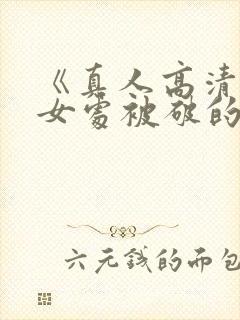 《真人高清
女处被破的
六元钱的而包